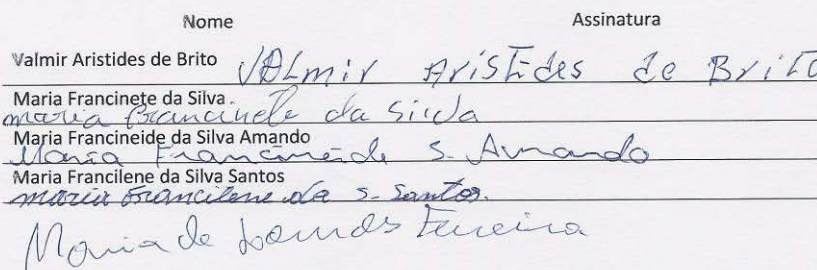 Nome Assinatura
Valmir Aristides de Brito VALmir AristideS de Brito
Maria Francinete da Silva
maria francinete da Silva
Maria Francineide da Silva Amando
Maria Francineide S. Amando
Maria Francilene da Silva Santos
maria Francilene da S. Santos.
Maria de Lourdes Ferreira